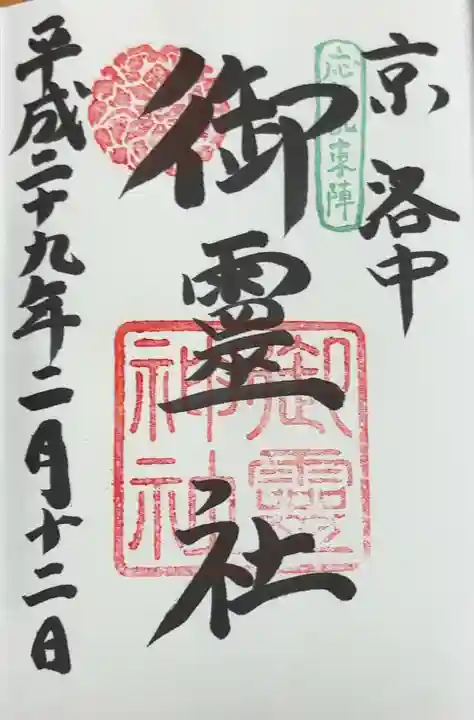 京 洛中
応仁の乱東陣
御霊社
御靈神社
平成二十九年二月十二日